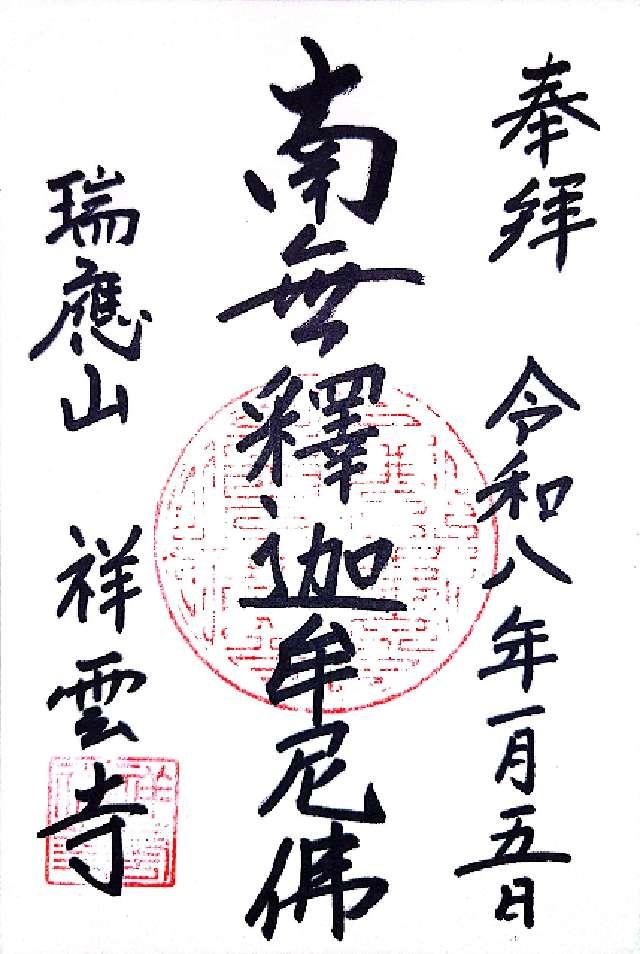 奉拜 令和八年一月五日
南無釋迦牟尼佛
瑞應山 祥雲寺